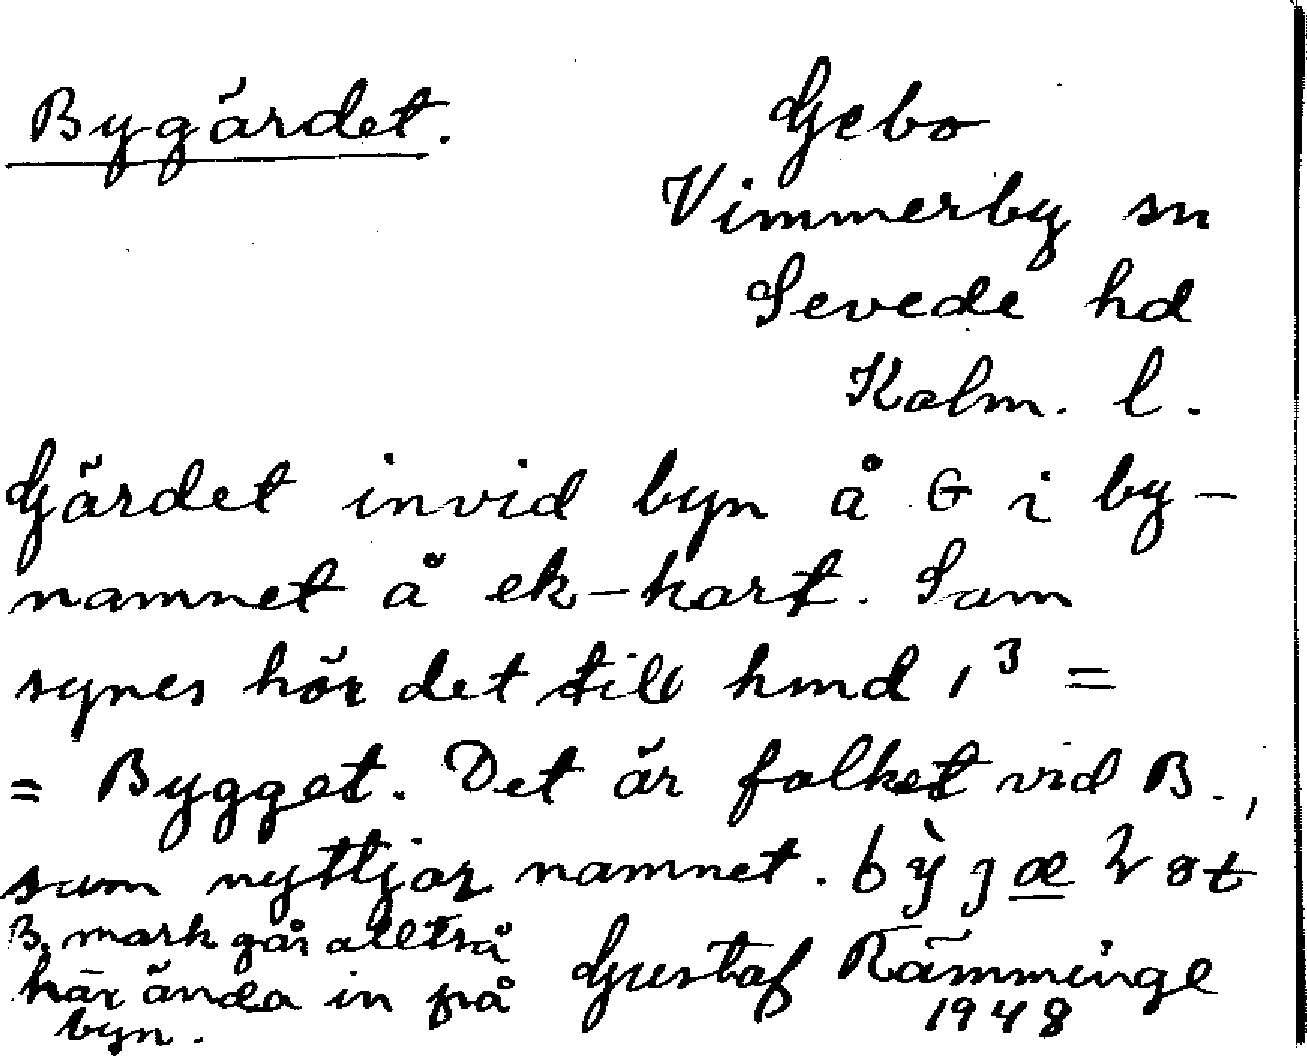 Bygärdet.
Gebo
Vimmerby sn
Sevede hd
Kalm. l.
Gärdet invid byn å G i by-
namnet å ek-kart. Som
synes hör det till hmd 1³ =
= Bygget. Det är folket vid B.,
som nyttjar namnet.
B. mark går alltså
här ända in på
byn.
Gustaf Rämminge
1948